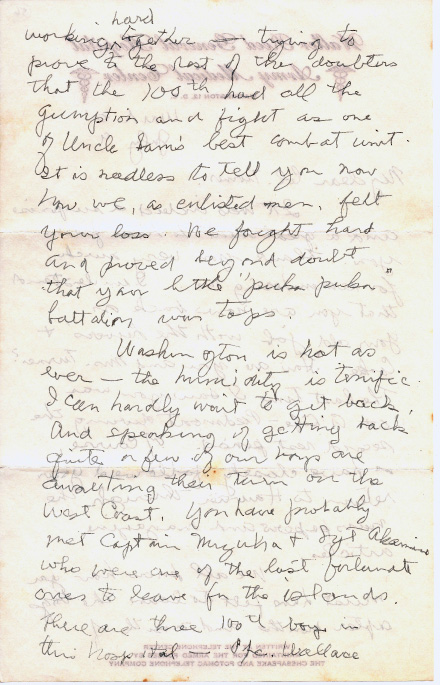 hard
working together — trying to
prove to the rest of the doubters
that the 100th had all the
gumption and fight as one
of Uncle Sam's best combat unit.
It is needless to tell you now
how we, as enlisted men, felt
your loss. We fought hard
and proved beyond doubt
that your little "puka puka"
battalion was tops.
Washington is hot as
ever — the humidity is terrific.
I can hardly wait to get back.
And speaking of getting back
quite a few of our boys are
awaiting their turn on the
West Coast. You have probably
met Captain Mizuha & Sgt Akamine
who were one of the last fortunate
ones to leave for the islands.
There are three 100th boys in
this hospital — Pfc. Wallace
THE CHESAPEAKE AND POTOMAC TELEPHONE COMPANY